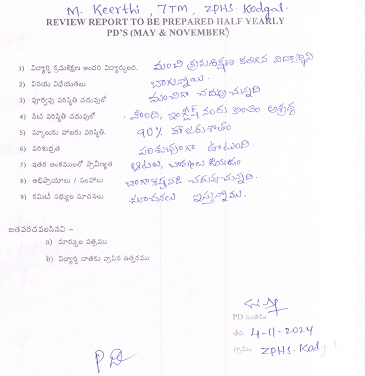 M. Keerthi, 7TM, ZPHS. Kodgal.
REVIEW REPORT TO BE PREPARED HALF YEARLY
PD'S (MAY & NOVEMBER)
1) విద్యార్థి క్రమశిక్షణ అందరి విద్యార్థులతో. మంచి క్రమశిక్షణ కలిగిన విద్యార్థిని
2) వినయ విధేయతలు బాగున్నాయి.
3) పూర్వపు పరిస్థితి చదువులో మంచిగా చదువుచున్నది
4) నేటి పరిస్థితి చదువులో హిందీ, ఇంగ్లీష్ నందు కొంతం అశ్రద్ధ
5) స్కూలుకు హాజరు పరిస్థితి. 90% హాజరుశాతం
6) పరిశుభ్రత పరిశుభ్రంగా ఉంటుంది.
7) ఇతర అంశములలో ప్రావీణ్యత ఆటలు,
8) అభిప్రాయాలు / సలహాలు చదువుచున్నది.
9) కమిటీ సభ్యుల సూచనలు సూచనలు ఇస్తున్నాము.
జతపరచవలసినవి -
a) మార్కుల పత్రము
b) విద్యార్థి దాతకు వ్రాసిన ఉత్తరము
PD సంతకం
తేది. 4-11-2024
గ్రామం ZPHS. Kodgal
PD